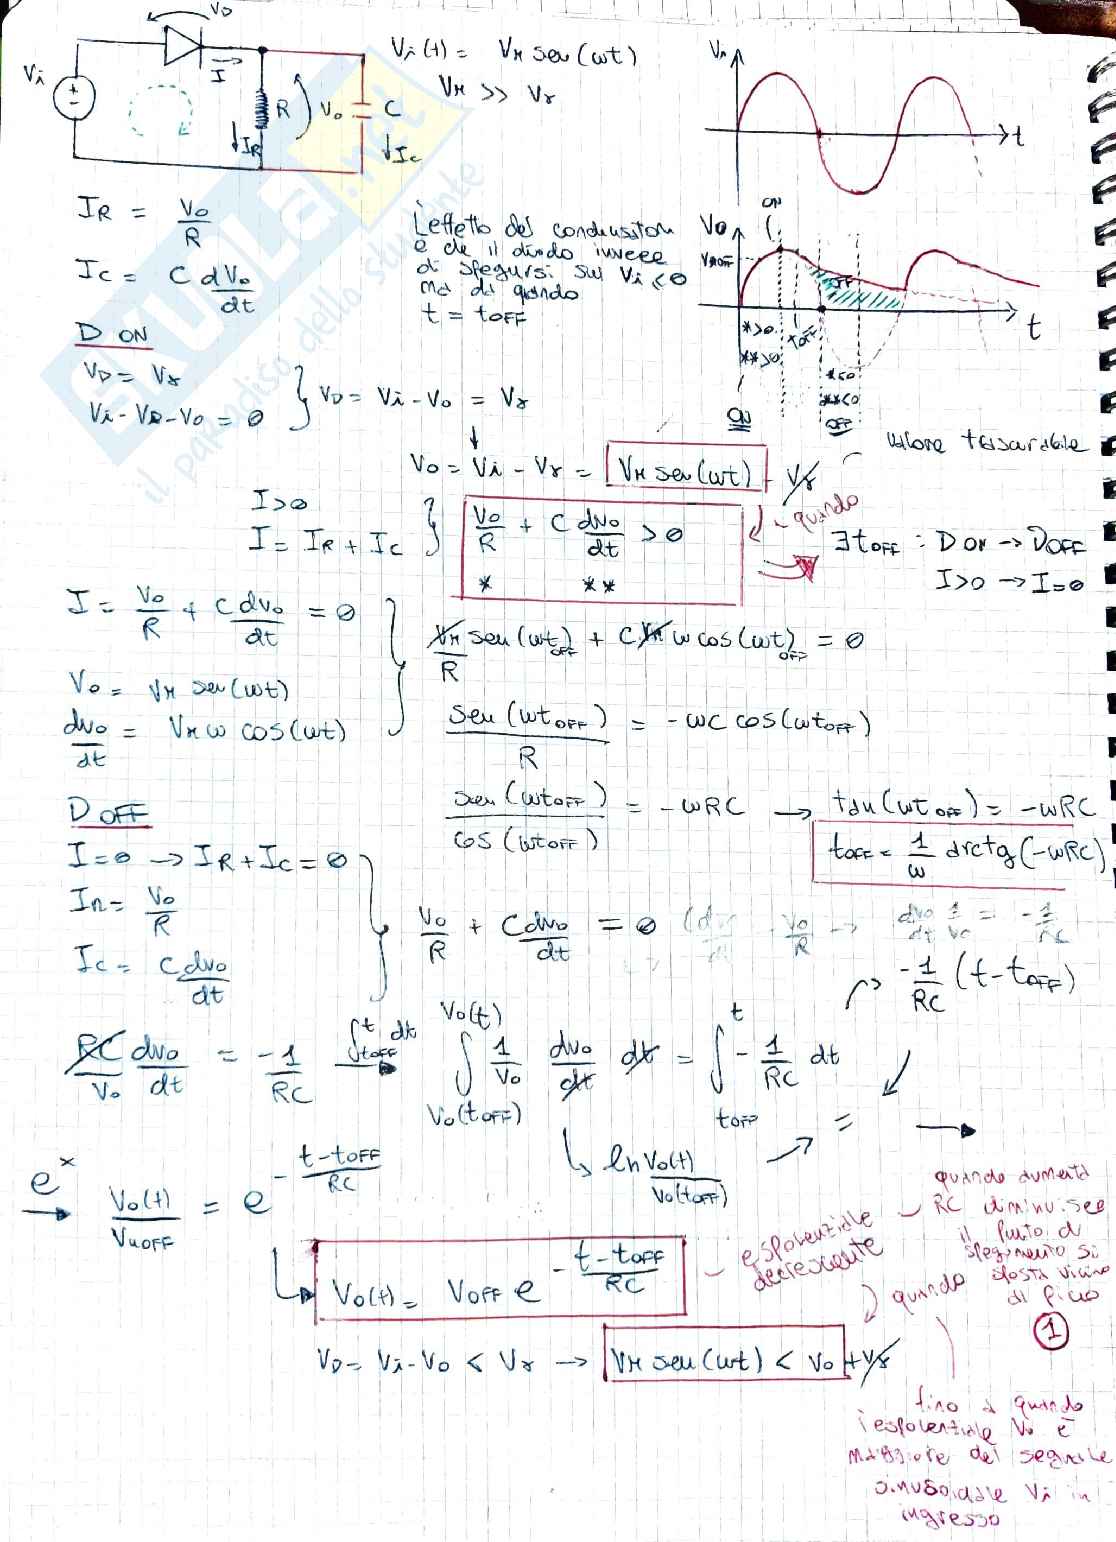 V_D
V_i(t) = V_M sen(ωt)
V_M >> V_γ
V_i
I
R
V_o
C
I_R
I_C
V_i
t
I_R = V_o/R
I_C = C dV_o/dt
L'effetto del
è che il diodo invece
di spegnersi su V_i<0
ma da quando
t = t_OFF
ON
V_o
t
*>0
**>0
t_OFF
*<0
**<0
ON
OFF
D ON
V_D = V_γ
V_i - V_D - V_o = 0
V_D = V_i - V_o = V_γ
V_o = V_i - V_γ = V_M sen(ωt) - V_γ
valore trascurabile
I>0
I = I_R + I_C
V_o/R + C dv_o/dt > 0
* **
quando
∃ t_OFF : D ON → D OFF
I>0 → I=0
I = V_o/R + C dv_o/dt = 0
V_o = V_M sen(ωt)
dv_o/dt = V_M ω cos(ωt)
V_M/R sen(ωt)_OFF + C V_M ω cos(ωt)_OFF = 0
sen(ωt_OFF)/R = -ωC cos(ωt_OFF)
sen(ωt_OFF)/cos(ωt_OFF) = -ωRC → tan(ωt_OFF) = -ωRC
t_OFF = 1/ω arctg(-ωRC)
D OFF
I=0 → I_R + I_C = 0
I_R = V_o/R
I_C = C dv_o/dt
V_o/R + C dv_o/dt = 0
dv_o/dt 1/V_o = -1/RC
-1/RC (t-t_OFF)
RC/V_o dv_o/dt = -1/RC ∫_{t_OFF}^{t} dt → ∫_{V_o(t_OFF)}^{V_o(t)} 1/V_o dv_o/dt dt = ∫_{t_OFF}^{t} -1/RC dt
ln V_o(t)/V_o(t_OFF)
=
e^x → V_o(t)/V_MOFF = e^{-(t-t_OFF)/RC}
V_o(t) = V_OFF e^{-(t-t_OFF)/RC}
esponenziale
decrescente
quando aumenta
RC diminuisce
il punto di
spegnimento si
sposta vicino
al picco
1
V_D = V_i - V_o < V_γ → V_M sen(ωt) < V_o + V_γ
quando
fino a quando
l'esponenziale V_o è
maggiore del segnale
sinusoidale V_i in
ingresso
SKUOLA.net
il paradiso dello studente